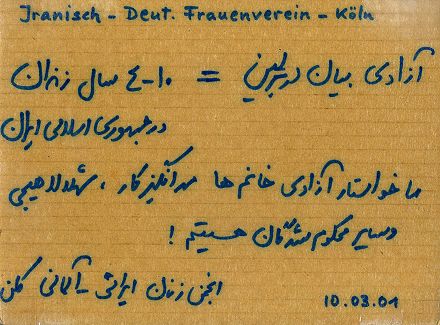 Iranisch - Deut. Frauenverein - Köln
آزادی بیان در برلین = ۱۰-٤ سال زندان
در جمهوری اسلامی ایران
ما خواستار آزادی خانم ها مهرانگیز کار ، شهلا لاهیجی
و سایر محکوم شدگان هستیم !
انجمن زنان ایرانی - آلمانی کلن
10.03.01